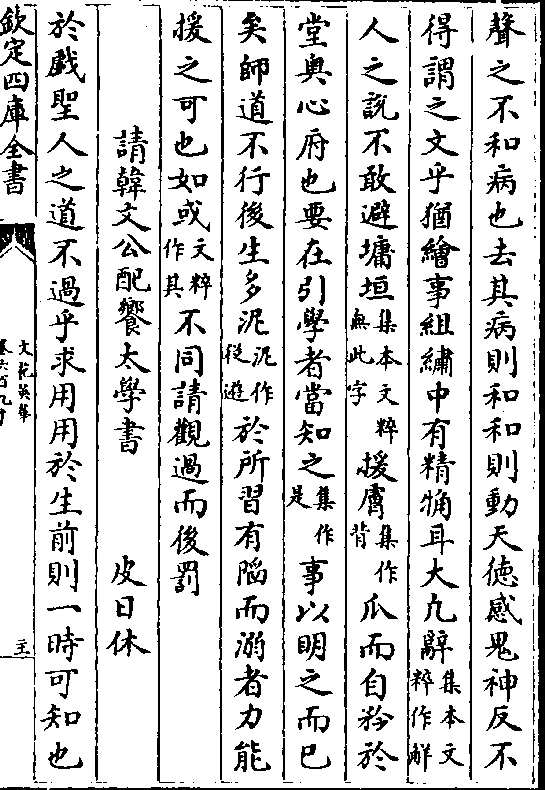 聲之不和病也去其病則和和則動天徳感鬼神反不
得謂之文乎猶繪事組繡中有精觕耳大凡辭集本文粹作解
人之說不敢避墉垣集本文粹無此字援膚集作背爪而自矜於
堂奥心府也要在引學者當知之集作是事以明之而已
矣師道不行後生多泥泥作從遊於所習有陷而溺者力能
援之可也如或文粹作其不同請觀過而後罰
請韓文公配饗太學書 皮日休
於戲聖人之道不過乎求用用於生前則一時可知也
欽定四庫全書
文苑英華